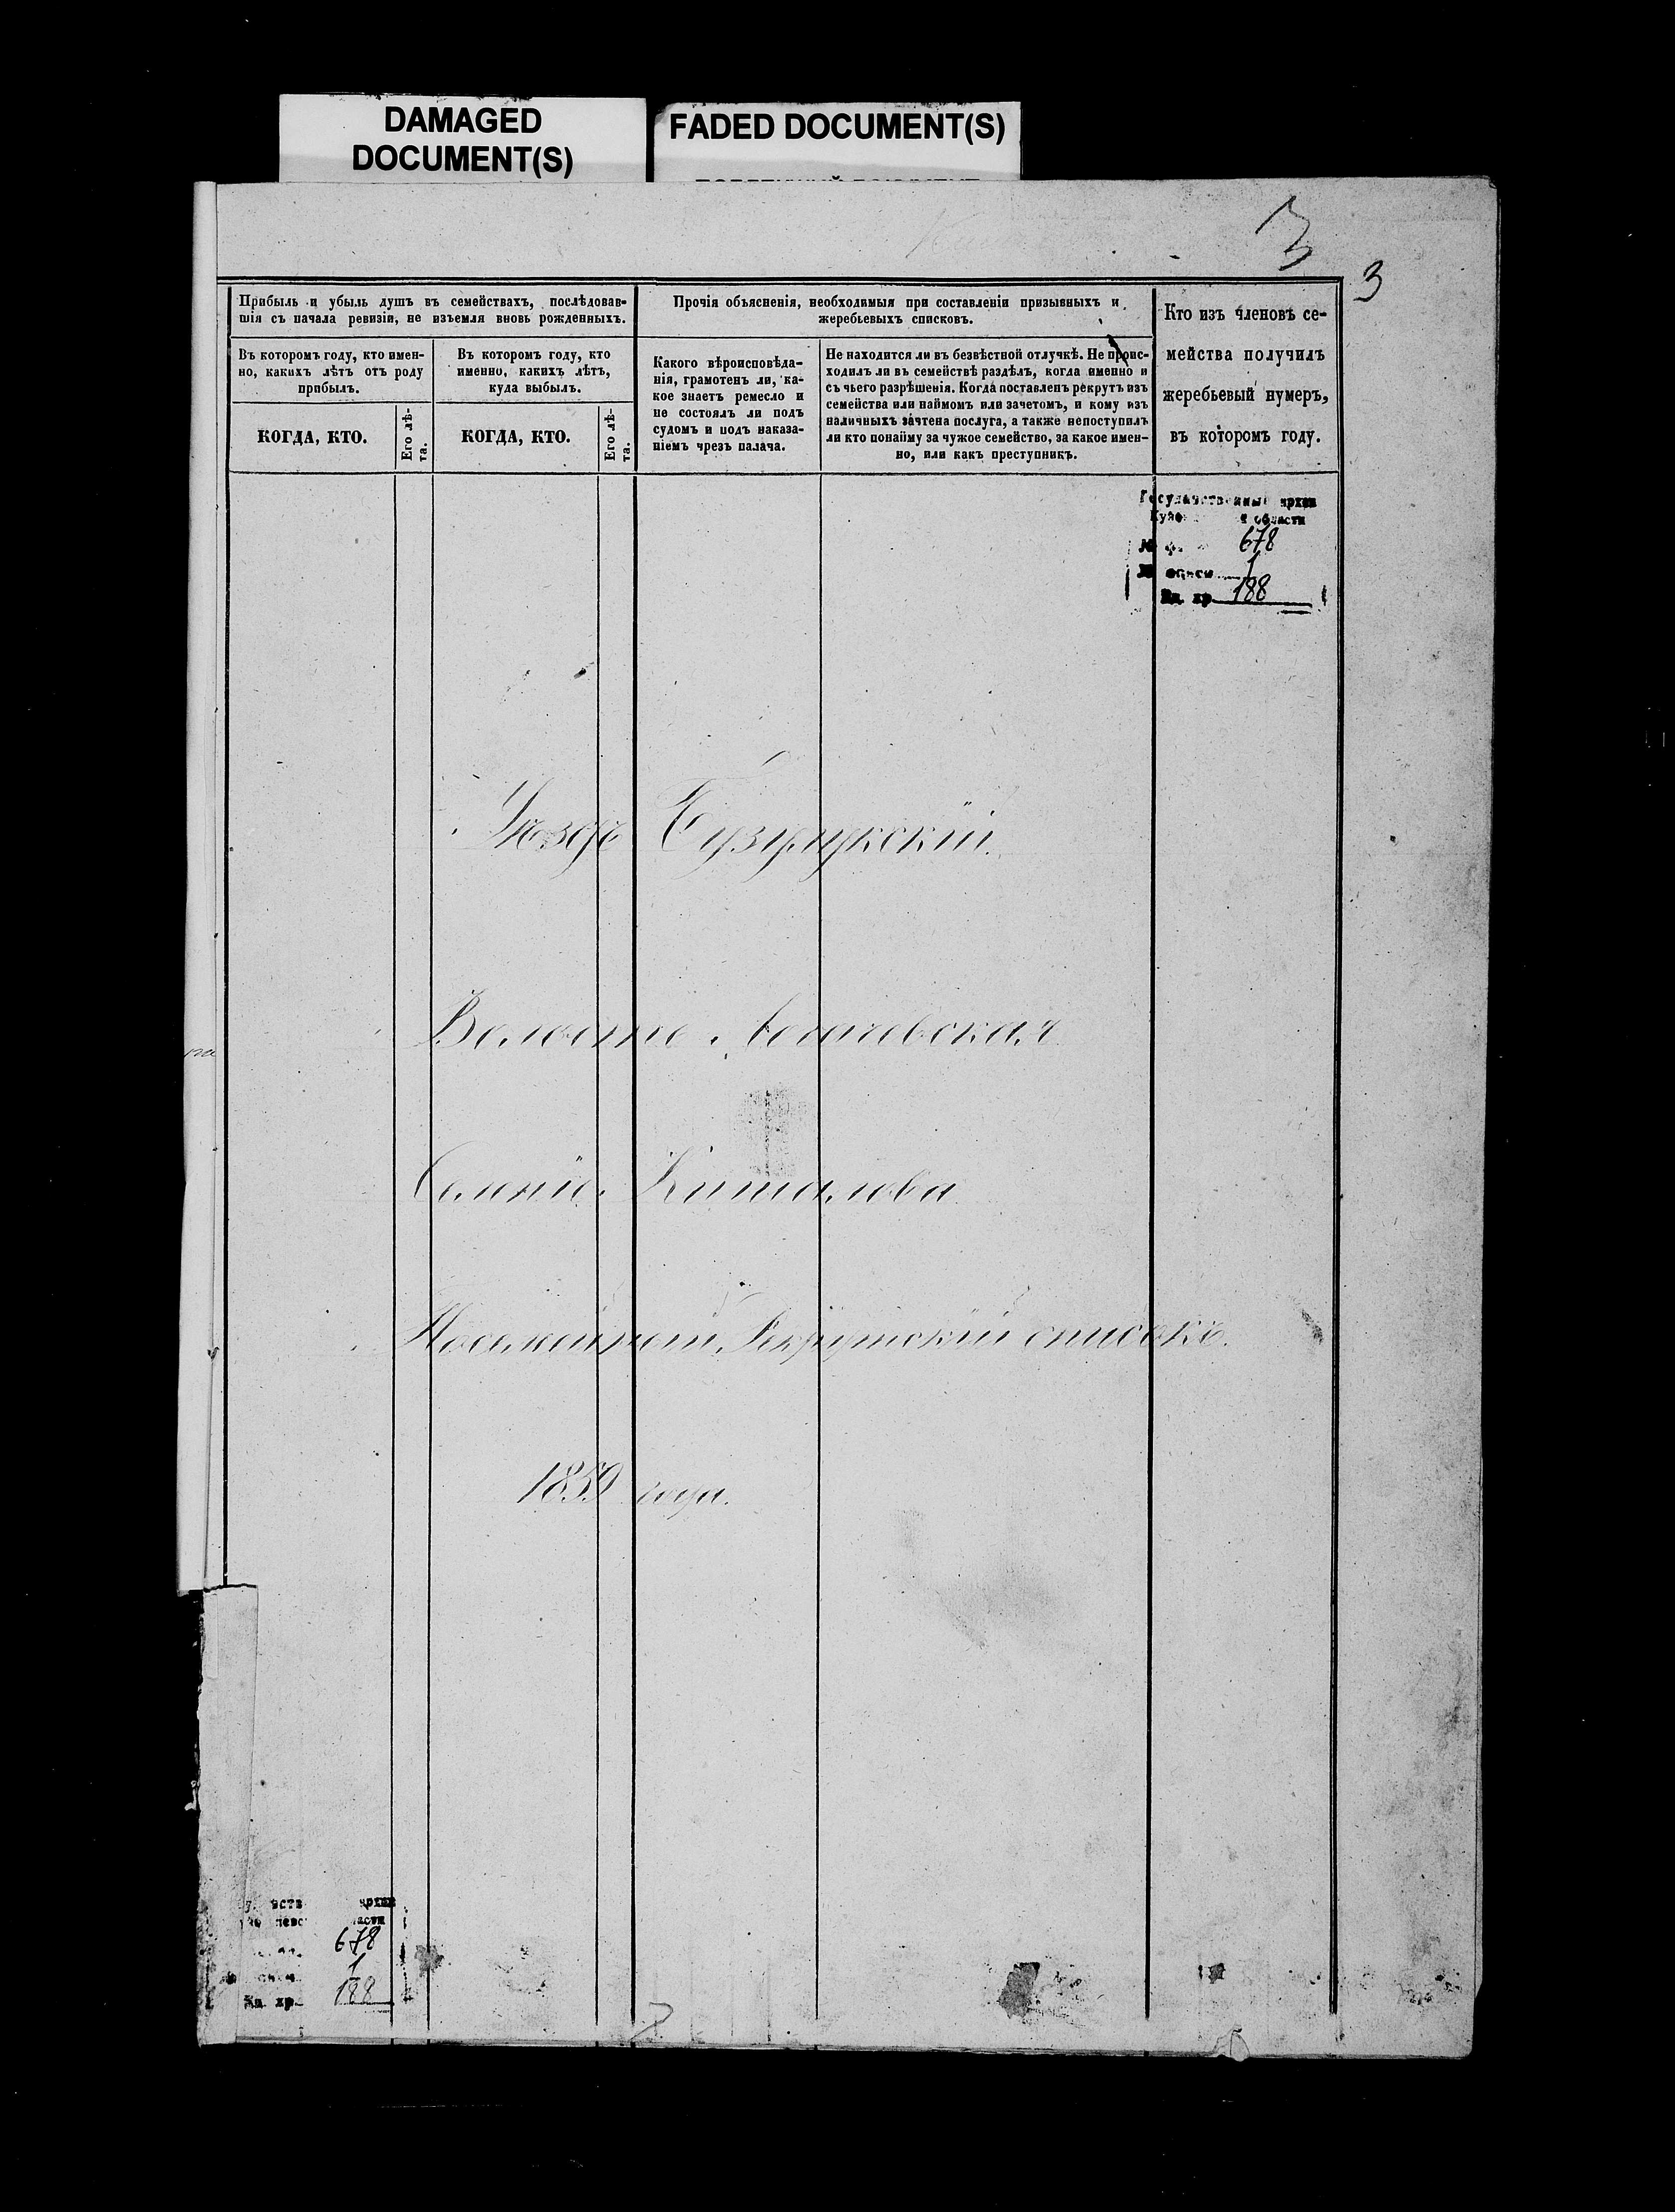 DAMAGED
DOCUMENT(S)
FADED DOCUMENT(S)
3
3
Прибыль и убыль душъ въ семействахъ, послѣдовав-
шія съ начала ревизіи, не изъемля вновь рожденныхъ.
Въ которомъ году, кто имен-
но, какихъ лѣтъ отъ роду
прибылъ.
КОГДА, КТО.
Его лѣ-
та.
Въ которомъ году, кто
именно, какихъ лѣтъ,
куда выбылъ.
КОГДА, КТО.
Его лѣ-
та.
Прочія объясненія, необходимыя при составленіи призывныхъ и
жеребьевыхъ списковъ.
Какого вѣроисповѣда-
нія, грамотенъ ли, ка-
кое знаетъ ремесло и
не состоялъ ли подъ
судомъ и подъ наказа-
ніемъ чрезъ палача.
Не находится ли въ безвѣстной отлучкѣ. Не проис-
ходилъ ли въ семействѣ раздѣлъ, когда именно и
съ чьего разрѣшенія. Когда поставленъ рекрутъ изъ
семейства или наймомъ или зачетомъ, и кому изъ
наличныхъ зачтена послуга, а также непоступилъ
ли кто понайму за чужое семейство, за какое имен-
но, или какъ преступникъ.
Кто изъ членовъ се-
мейства получилъ
жеребьевый нумеръ,
въ которомъ году.
Государственный архив
области
678
1
188
Уѣздъ Бузулукскій
Волость
Селеніе Киталова
Посемейной Рекрутскій списокъ.
1859 года.
678
1
Ед. хр. 188